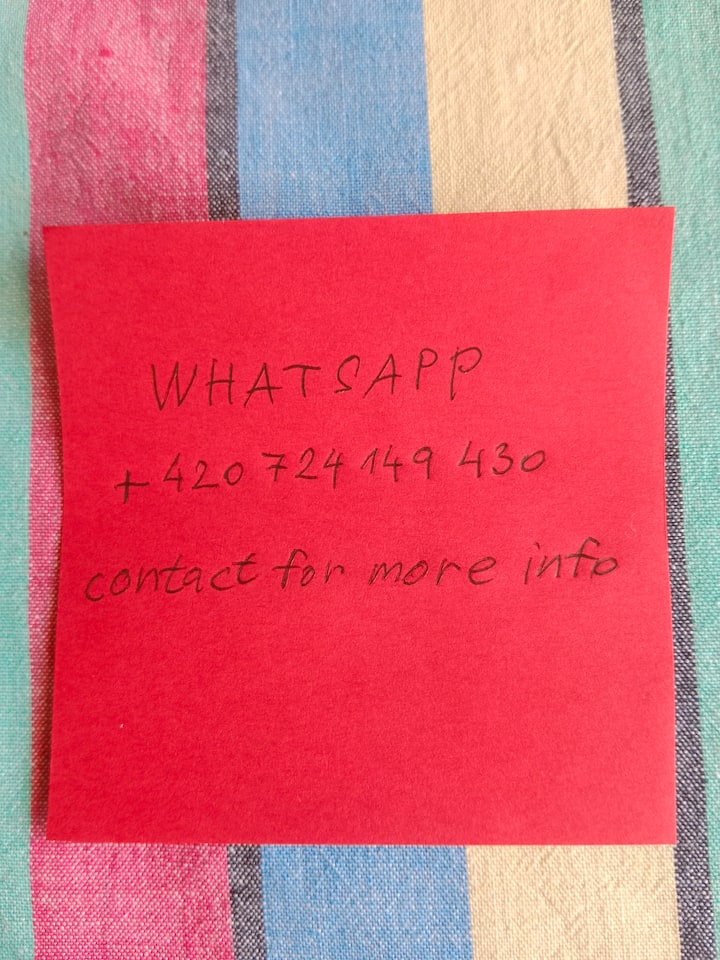 WHATSAPP
+420 724 149 430
contact for more info